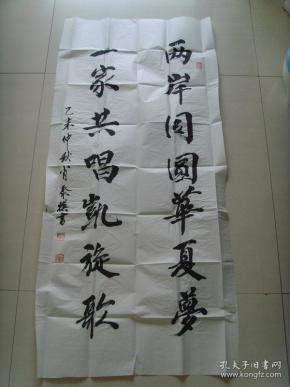 两岸同圆華夏夢
一家共唱凱旋歌
乙未仲秋
孔夫子旧书网
www.kongfz.com